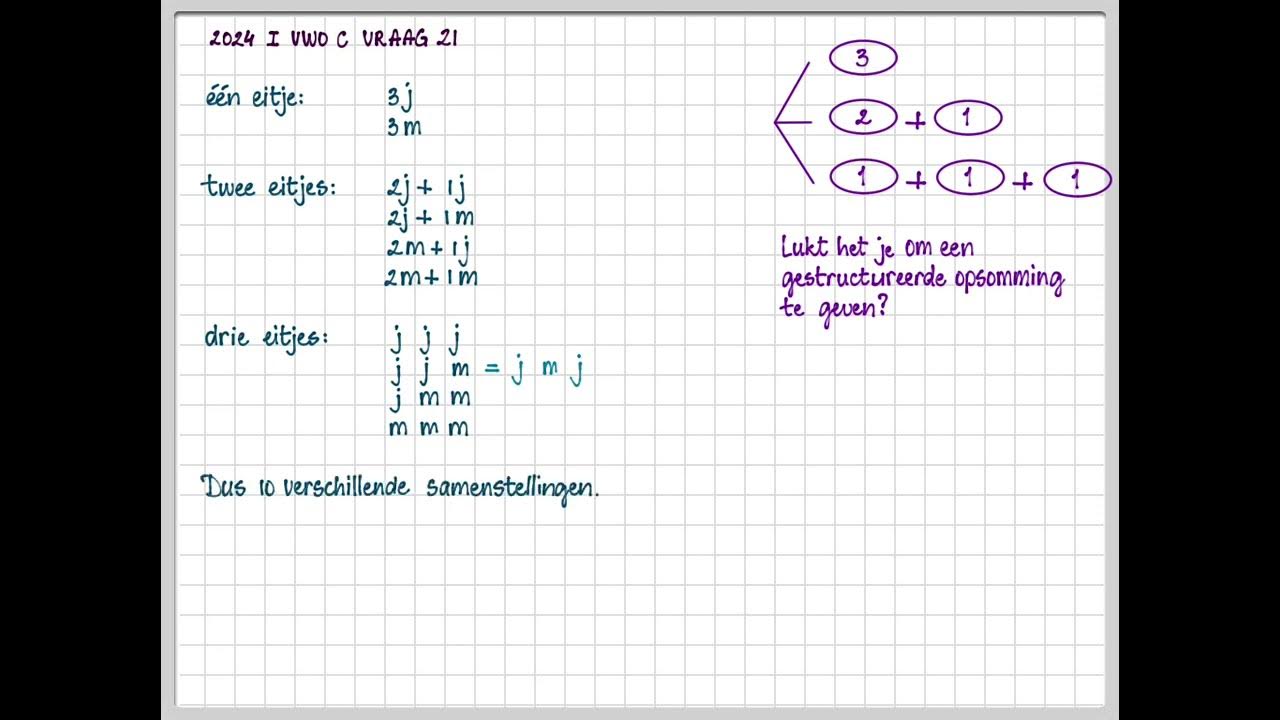 2024 I VWO C VRAAG 21
één eitje: 3j
3m
twee eitjes: 2j + 1j
2j + 1m
2m + 1j
2m + 1m
drie eitjes: j j j
j j m = j m j
j m m
m m m
Dus 10 verschillende samenstellingen.
3
2 + 1
1 + 1 + 1
Lukt het je om een
gestructureerde opsomming
te geven?